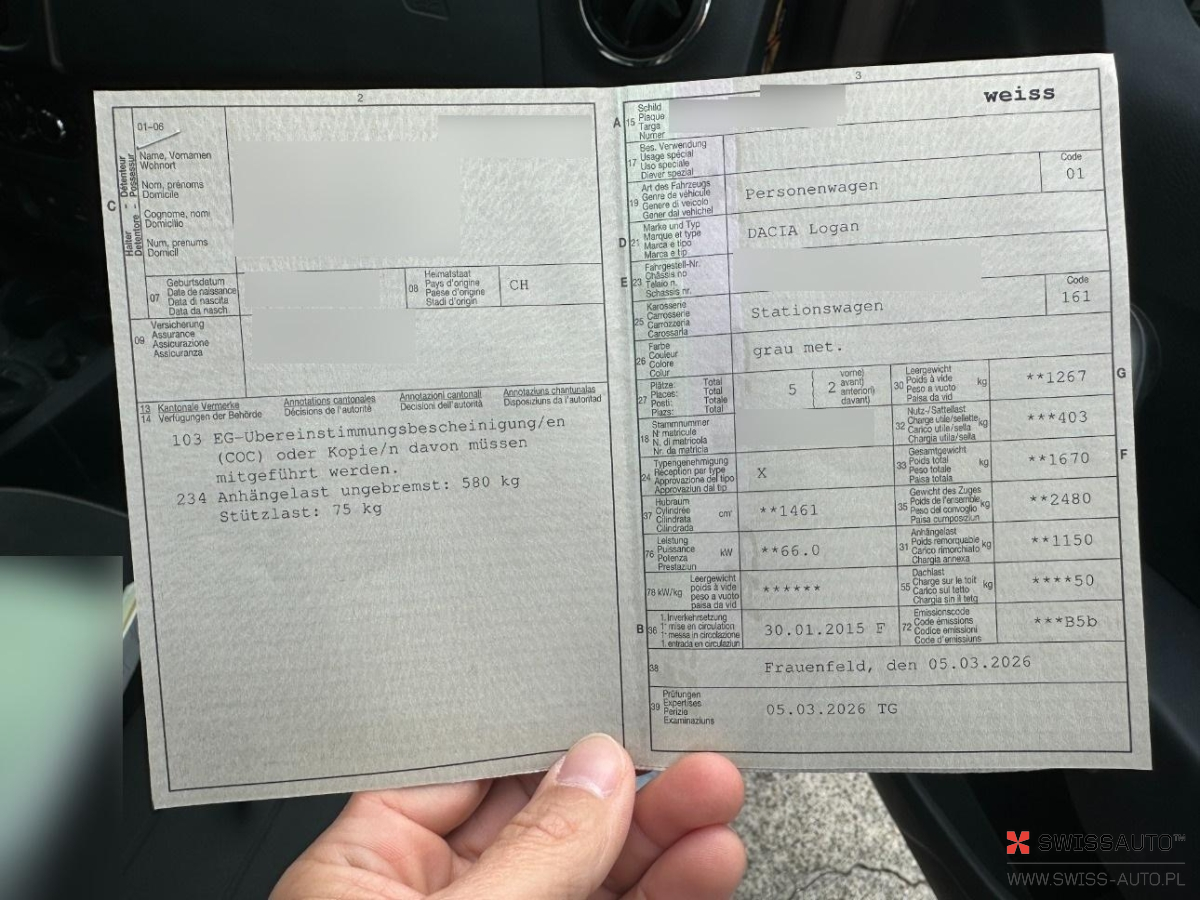 2
01-06
C
Halter - Détenteur
Detentore - Possessur
Name, Vornamen
Wohnort
Nom, prénoms
Domicile
Cognome, nomi
Domicilio
Num, prenums
Domicil
07
Geburtsdatum
Date de naissance
Data di nascita
Data da nasch.
08
Heimatstaat
Pays d'origine
Paese d'origine
Stadi d'origin
CH
09
Versicherung
Assurance
Assicurazione
Assicuranza
13 Kantonale Vermerke Annotations cantonales Annotazioni cantonali Annotaziuns chantunalas
14 Verfügungen der Behörde Décisions de l'autorité Decisioni dell'autorità Disposiziuns da l'autoritad
103 EG-Übereinstimmungsbescheinigung/en
(COC) oder Kopie/n davon müssen
mitgeführt werden.
234 Anhängelast ungebremst: 580 kg
Stützlast: 75 kg
3
weiss
A 15
Schild
Plaque
Targa
Numer
17
Bes. Verwendung
Usage spécial
Uso speciale
Diever spezial
19
Art des Fahrzeugs
Genre de véhicule
Genere di veicolo
Gener dal vehichel
Personenwagen
Code
01
D 21
Marke und Typ
Marque et type
Marca e tipo
Marca e tip
DACIA Logan
E 23
Fahrgestell-Nr.
Châssis no
Telaio n.
Schassis nr.
25
Karosserie
Carrosserie
Carrozzeria
Carossaria
Stationswagen
Code
161
26
Farbe
Couleur
Colore
Colur
grau met.
27
Plätze: Total
Places: Total
Posti: Totale
Plazs: Total
5
2
vorne)
avant)
anteriori)
davant)
30
Leergewicht
Poids à vide
Peso a vuoto
Paisa da vid
kg
**1267
G
18
Stammnummer
N° matricule
N. di matricola
Nr. da matricla
32
Nutz-/Sattellast
Charge utile/sellette
Carico utile/sella
Chargia utila/sella
kg
***403
24
Typengenehmigung
Réception par type
Approvazione del tipo
Approvaziun dal tip
X
33
Gesamtgewicht
Poids total
Peso totale
Paisa totala
kg
**1670
F
37
Hubraum
Cylindrée
Cilindrata
Cilindrada
cm³
**1461
35
Gewicht des Zuges
Poids de l'ensemble
Peso del convoglio
Paisa cumposiziun
kg
**2480
76
Leistung
Puissance
Potenza
Prestaziun
kW
**66.0
31
Anhängelast
Poids remorquable
Carico rimorchiato
Chargia annexa
kg
**1150
78 kW/kg
Leergewicht
poids à vide
peso a vuoto
paisa da vid
******
55
Dachlast
Charge sur le toit
Carico sul tetto
Chargia sin il tetg
kg
****50
B 36
1. Inverkehrsetzung
1re mise en circulation
1a messa in circolazione
1. entrada en circulaziun
30.01.2015 F
72
Emissionscode
Code émissions
Codice emissioni
Code d'emissiuns
***B5b
38
Frauenfeld, den 05.03.2026
39
Prüfungen
Expertises
Perizia
Examinaziuns
05.03.2026 TG
SWISSAUTO™
WWW.SWISS-AUTO.PL